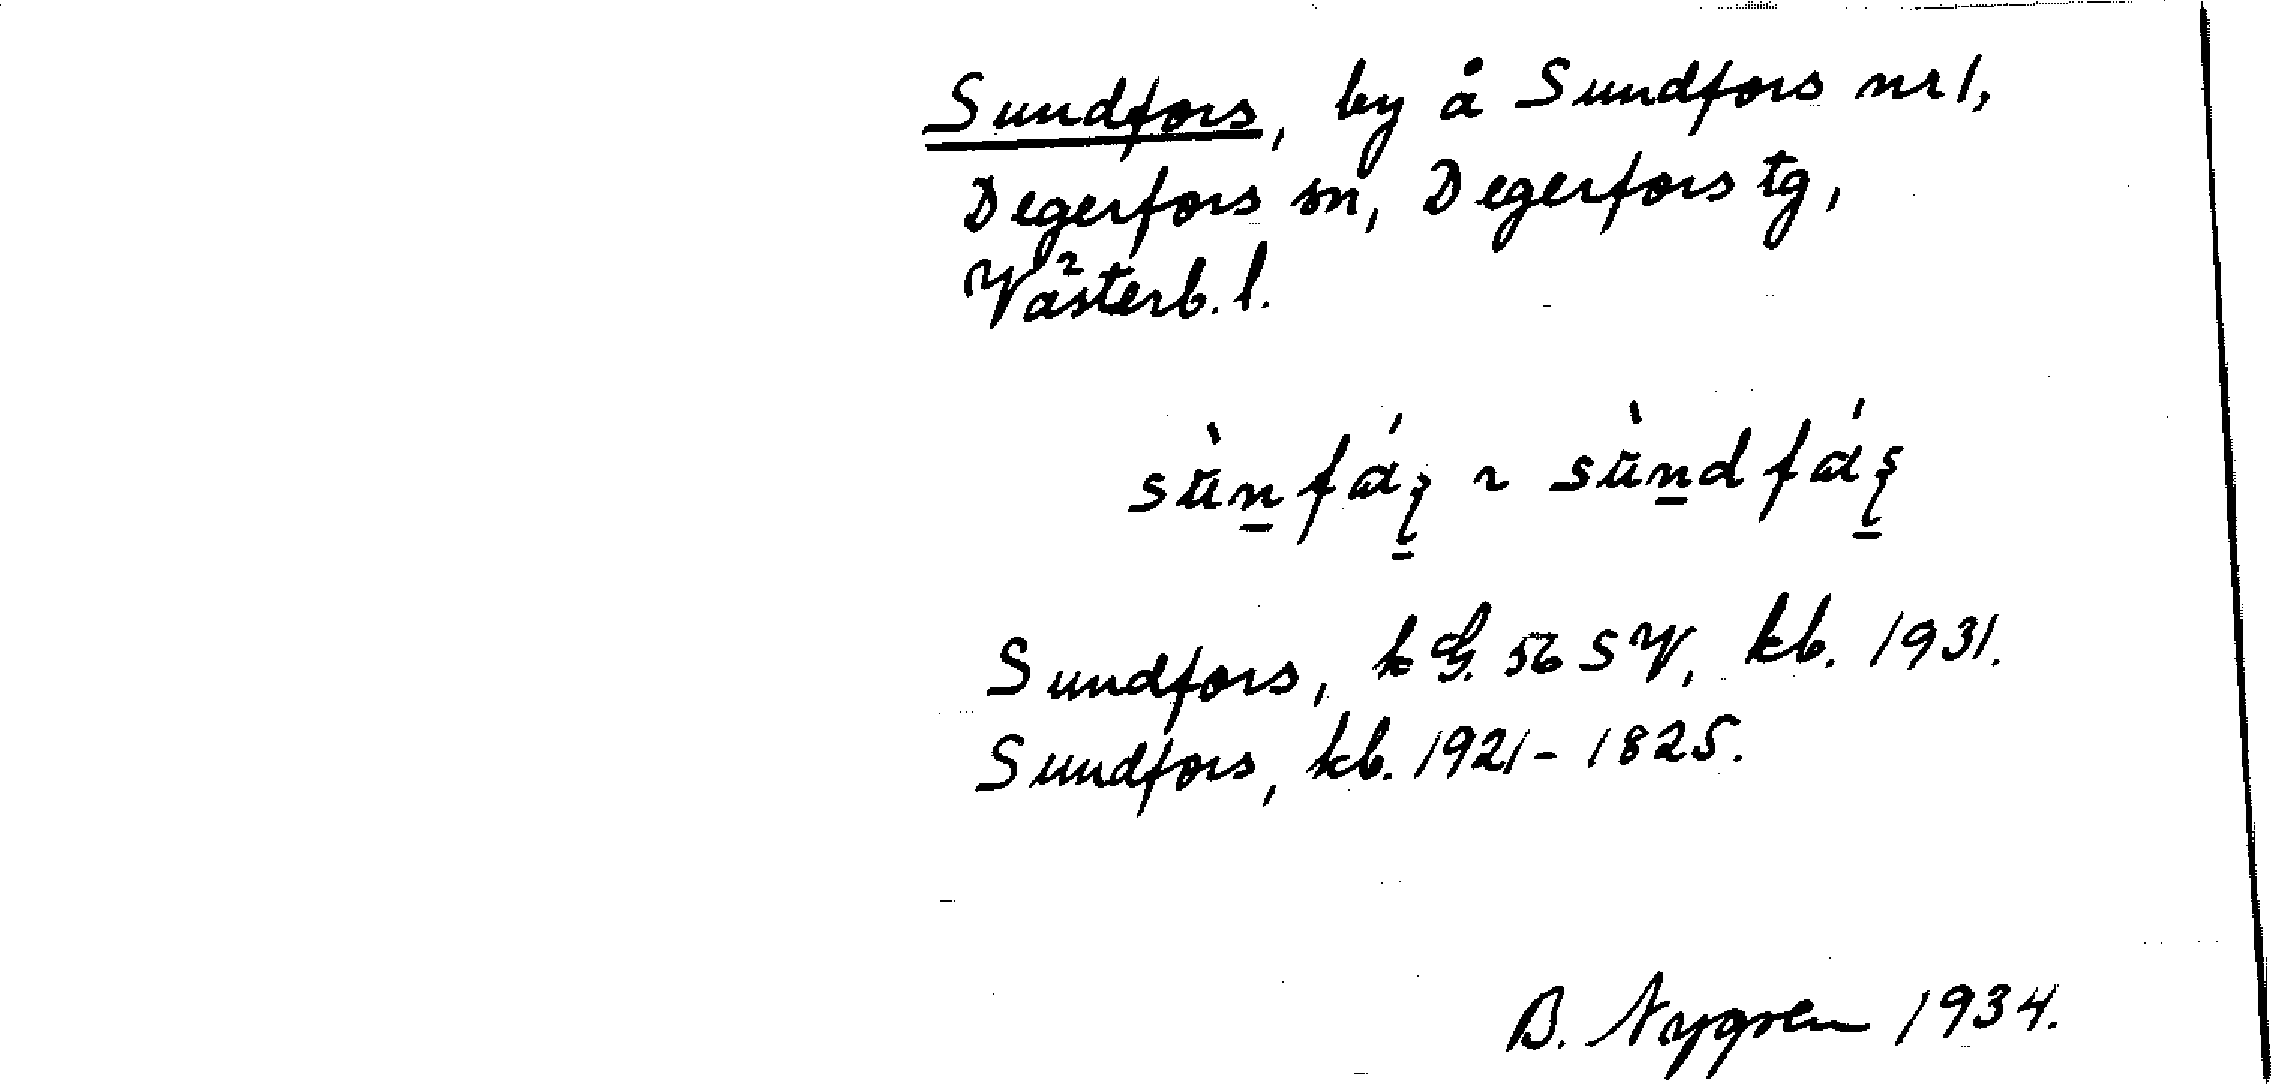 Sundfors, by å Sundfors nr 1,
Degerfors sn, Degerfors tg,
Västerb. l.
Sundfors, k G. 56 SV, kb. 1931.
Sundfors, kb. 1921-1825.
B. Nygren 1934.